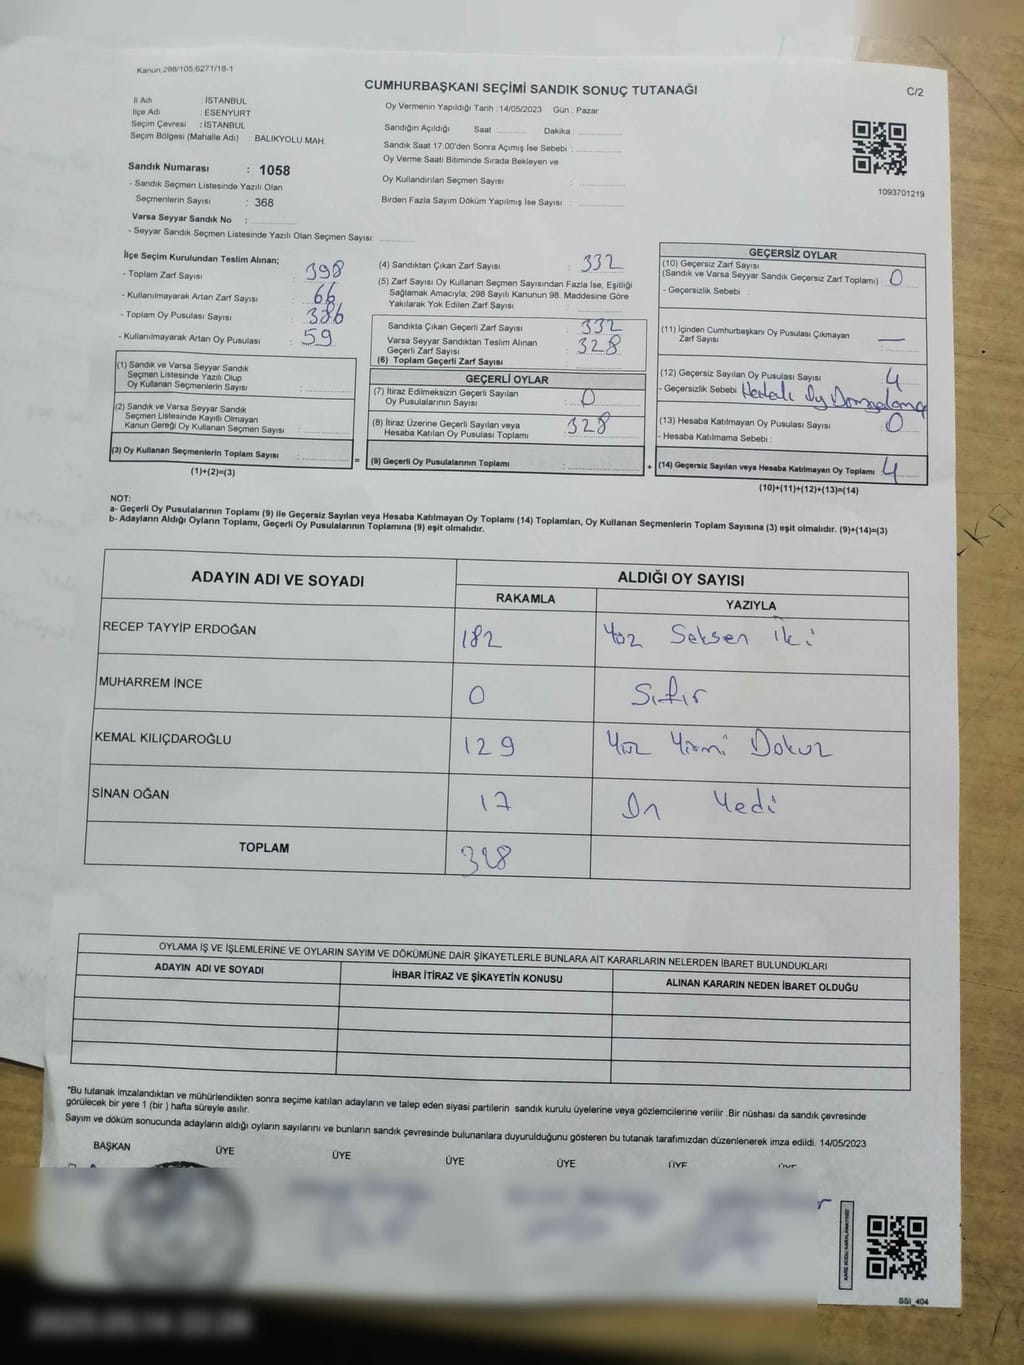 Kanun:298/105;6271/18-1
CUMHURBAŞKANI SEÇİMİ SANDIK SONUÇ TUTANAĞI
C/2
İl Adı : İSTANBUL
İlçe Adı : ESENYURT
Seçim Çevresi : İSTANBUL
Seçim Bölgesi (Mahalle Adı) : BALIKYOLU MAH.
Sandık Numarası : 1058
- Sandık Seçmen Listesinde Yazılı Olan
Seçmenlerin Sayısı : 368
Varsa Seyyar Sandık No :
- Seyyar Sandık Seçmen Listesinde Yazılı Olan Seçmen Sayısı:
Oy Vermenin Yapıldığı Tarih :14/05/2023 Gün : Pazar
Sandığın Açıldığı Saat : Dakika :
Sandık Saat 17:00'den Sonra Açımış İse Sebebi :
Oy Verme Saati Bitiminde Sırada Bekleyen ve
Oy Kullandırılan Seçmen Sayısı :
Birden Fazla Sayım Döküm Yapılmış İse Sayısı :
1093701219
İlçe Seçim Kurulundan Teslim Alınan;
- Toplam Zarf Sayısı : 398
- Kullanılmayarak Artan Zarf Sayısı : 66
- Toplam Oy Pusulası Sayısı : 386
- Kullanılmayarak Artan Oy Pusulası : 59
(1) Sandık ve Varsa Seyyar Sandık
Seçmen Listesinde Yazılı Olup
Oy Kullanan Seçmenlerin Sayısı :
(2) Sandık ve Varsa Seyyar Sandık
Seçmen Listesinde Kayıtlı Olmayan
Kanun Gereği Oy Kullanan Seçmen Sayısı :
(3) Oy Kullanan Seçmenlerin Toplam Sayısı :
(1)+(2)=(3)
=
(4) Sandıktan Çıkan Zarf Sayısı : 332
(5) Zarf Sayısı Oy Kullanan Seçmen Sayısından Fazla İse, Eşitliği
Sağlamak Amacıyla; 298 Sayılı Kanunun 98. Maddesine Göre
Yakılarak Yok Edilen Zarf Sayısı :
Sandıkta Çıkan Geçerli Zarf Sayısı : 332
Varsa Seyyar Sandıktan Teslim Alınan
Geçerli Zarf Sayısı : 328
(6) Toplam Geçerli Zarf Sayısı :
GEÇERLİ OYLAR
(7) İtiraz Edilmeksizin Geçerli Sayılan
Oy Pusulalarının Sayısı : 0
(8) İtiraz Üzerine Geçerli Sayılan veya
Hesaba Katılan Oy Pusulası Toplamı : 328
(9) Geçerli Oy Pusulalarının Toplamı :
+
GEÇERSİZ OYLAR
(10) Geçersiz Zarf Sayısı
(Sandık ve Varsa Seyyar Sandık Geçersiz Zarf Toplamı) : 0
- Geçersizlik Sebebi :
(11) İçinden Cumhurbaşkanı Oy Pusulası Çıkmayan
Zarf Sayısı : —
(12) Geçersiz Sayılan Oy Pusulası Sayısı : 4
- Geçersizlik Sebebi Hatalı Oy Damgalama
(13) Hesaba Katılmayan Oy Pusulası Sayısı : 0
- Hesaba Katılmama Sebebi :
(14) Geçersiz Sayılan veya Hesaba Katılmayan Oy Toplamı : 4
(10)+(11)+(12)+(13)=(14)
NOT:
a- Geçerli Oy Pusulası Toplamı (9) ile Geçersiz Sayılan veya Hesaba Katılmayan Oy Toplamı (14) Toplamları, Oy Kullanan Seçmenlerin Toplam Sayısına (3) eşit olmalıdır. (9)+(14)=(3)
b- Adayların Aldığı Oyların Toplamı, Geçerli Oy Pusulalarının Toplamına (9) eşit olmalıdır.
ADAYIN ADI VE SOYADI
ALDIĞI OY SAYISI
RAKAMLA YAZIYLA
RECEP TAYYİP ERDOĞAN 182 Yüz Seksen iki
MUHARREM İNCE 0 Sıfır
KEMAL KILIÇDAROĞLU 129 Yüz Yirmi Dokuz
SİNAN OĞAN 17 On Yedi
TOPLAM 328
OYLAMA İŞ VE İŞLEMLERİNE VE OYLARIN SAYIM VE DÖKÜMÜNE DAİR ŞİKAYETLERLE BUNLARA AİT KARARLARIN NELERDEN İBARET BULUNDUKLARI
ADAYIN ADI VE SOYADI İHBAR İTİRAZ VE ŞİKAYETİN KONUSU ALINAN KARARIN NEDEN İBARET OLDUĞU
*Bu tutanak imzalandıktan ve mühürlendikten sonra seçime katılan adayların ve talep eden siyasi partilerin sandık kurulu üyelerine veya gözlemcilerine verilir .Bir nüshası da sandık çevresinde
görülecek bir yere 1 (bir ) hafta süreyle asılır.
Sayım ve döküm sonucunda adayların aldığı oyların sayılarını ve bunların sandık çevresinde bulunanlara duyurulduğunu gösteren bu tutanak tarafımızdan düzenlenerek imza edildi. 14/05/2023
BAŞKAN ÜYE ÜYE ÜYE ÜYE ÜYE
BSI_404